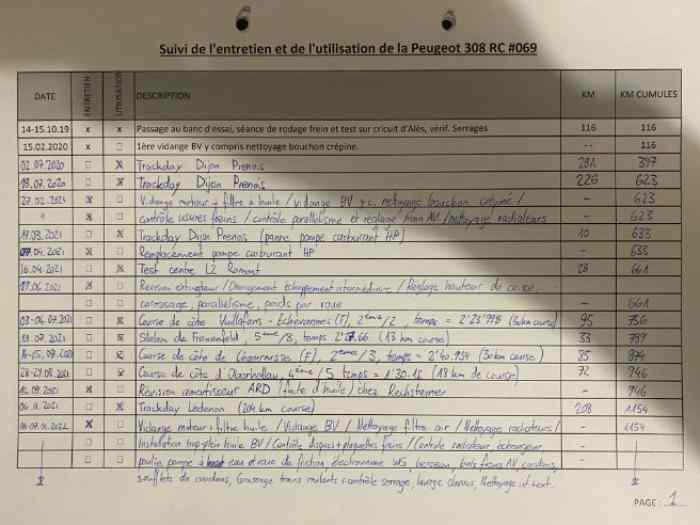 Suivi de l'entretien et de l'utilisation de la Peugeot 308 RC #069
DATE ENTRETIEN UTILISATION DESCRIPTION KM KM CUMULES
14-15.10.19 x x Passage au banc d'essai, séance de rodage frein et test sur cricuit d'Alès, vérif. Serrages 116 116
15.02.2020 x 1ère vidange BV y compris nettoyage bouchon crépine. -- 116
02.07.2020 x Trackday Dijon Prenois 281 397
.07.2020 x Trackday Dijon Prenois 226 623
27.02.2021 x Vidange moteur + filtre à huile / vidange BV y.c. nettoyage bouchon crépine / - 623
" x contrôle usures freins / contrôle parallélisme et réglage train AV / nettoyage radiateurs - 623
.03.2021 x Trackday Dijon Prenois (panne pompe carburant HP) 10 633
07.04.2021 x Remplacement pompe carburant HP - 633
10.04.2021 x Test centre L2 Romont 28 661
.06.2021 x Révision extincteur / Changement échappement intermédiaire / Réglage hauteur de caisse,
carrossage, parallélisme, poids par roue - 661
.07.2021 x Course de côte - (F), 2ème/2, temps = (30km course) 95 756
.07.2021 x Slalom de Frauenfeld, 5ème/8, temps (13 km course) 33 789
.07.2021 x Course de côte de (F), 2ème/3, temps = 2'40.954 (30km course) 35 874
28-29.08.2021 x Course de côte d'Oberhallau, 4ème/5 temps = 1'30.15 (18 km de course) 72 946
.09.2021 x Révision amortisseur ARD (fuite d'huile) chez Rechsteiner - 946
06.11.2021 x Trackday Ledenon (204 km course) 208 1154
.2022 x Vidange moteur + filtre huile / Vidange BV / Nettoyage filtre air / Nettoyages radiateurs / - 1154
Installation trop plein huile BV / Contrôle disques + plaquettes freins / Contrôle radiateur, échangeur, -
poulie, pompe à eau et roue de friction, -
soufflets de cardans, Graissage trains roulants + contrôle serrage, Nettoyage int + ext.
PAGE : 1